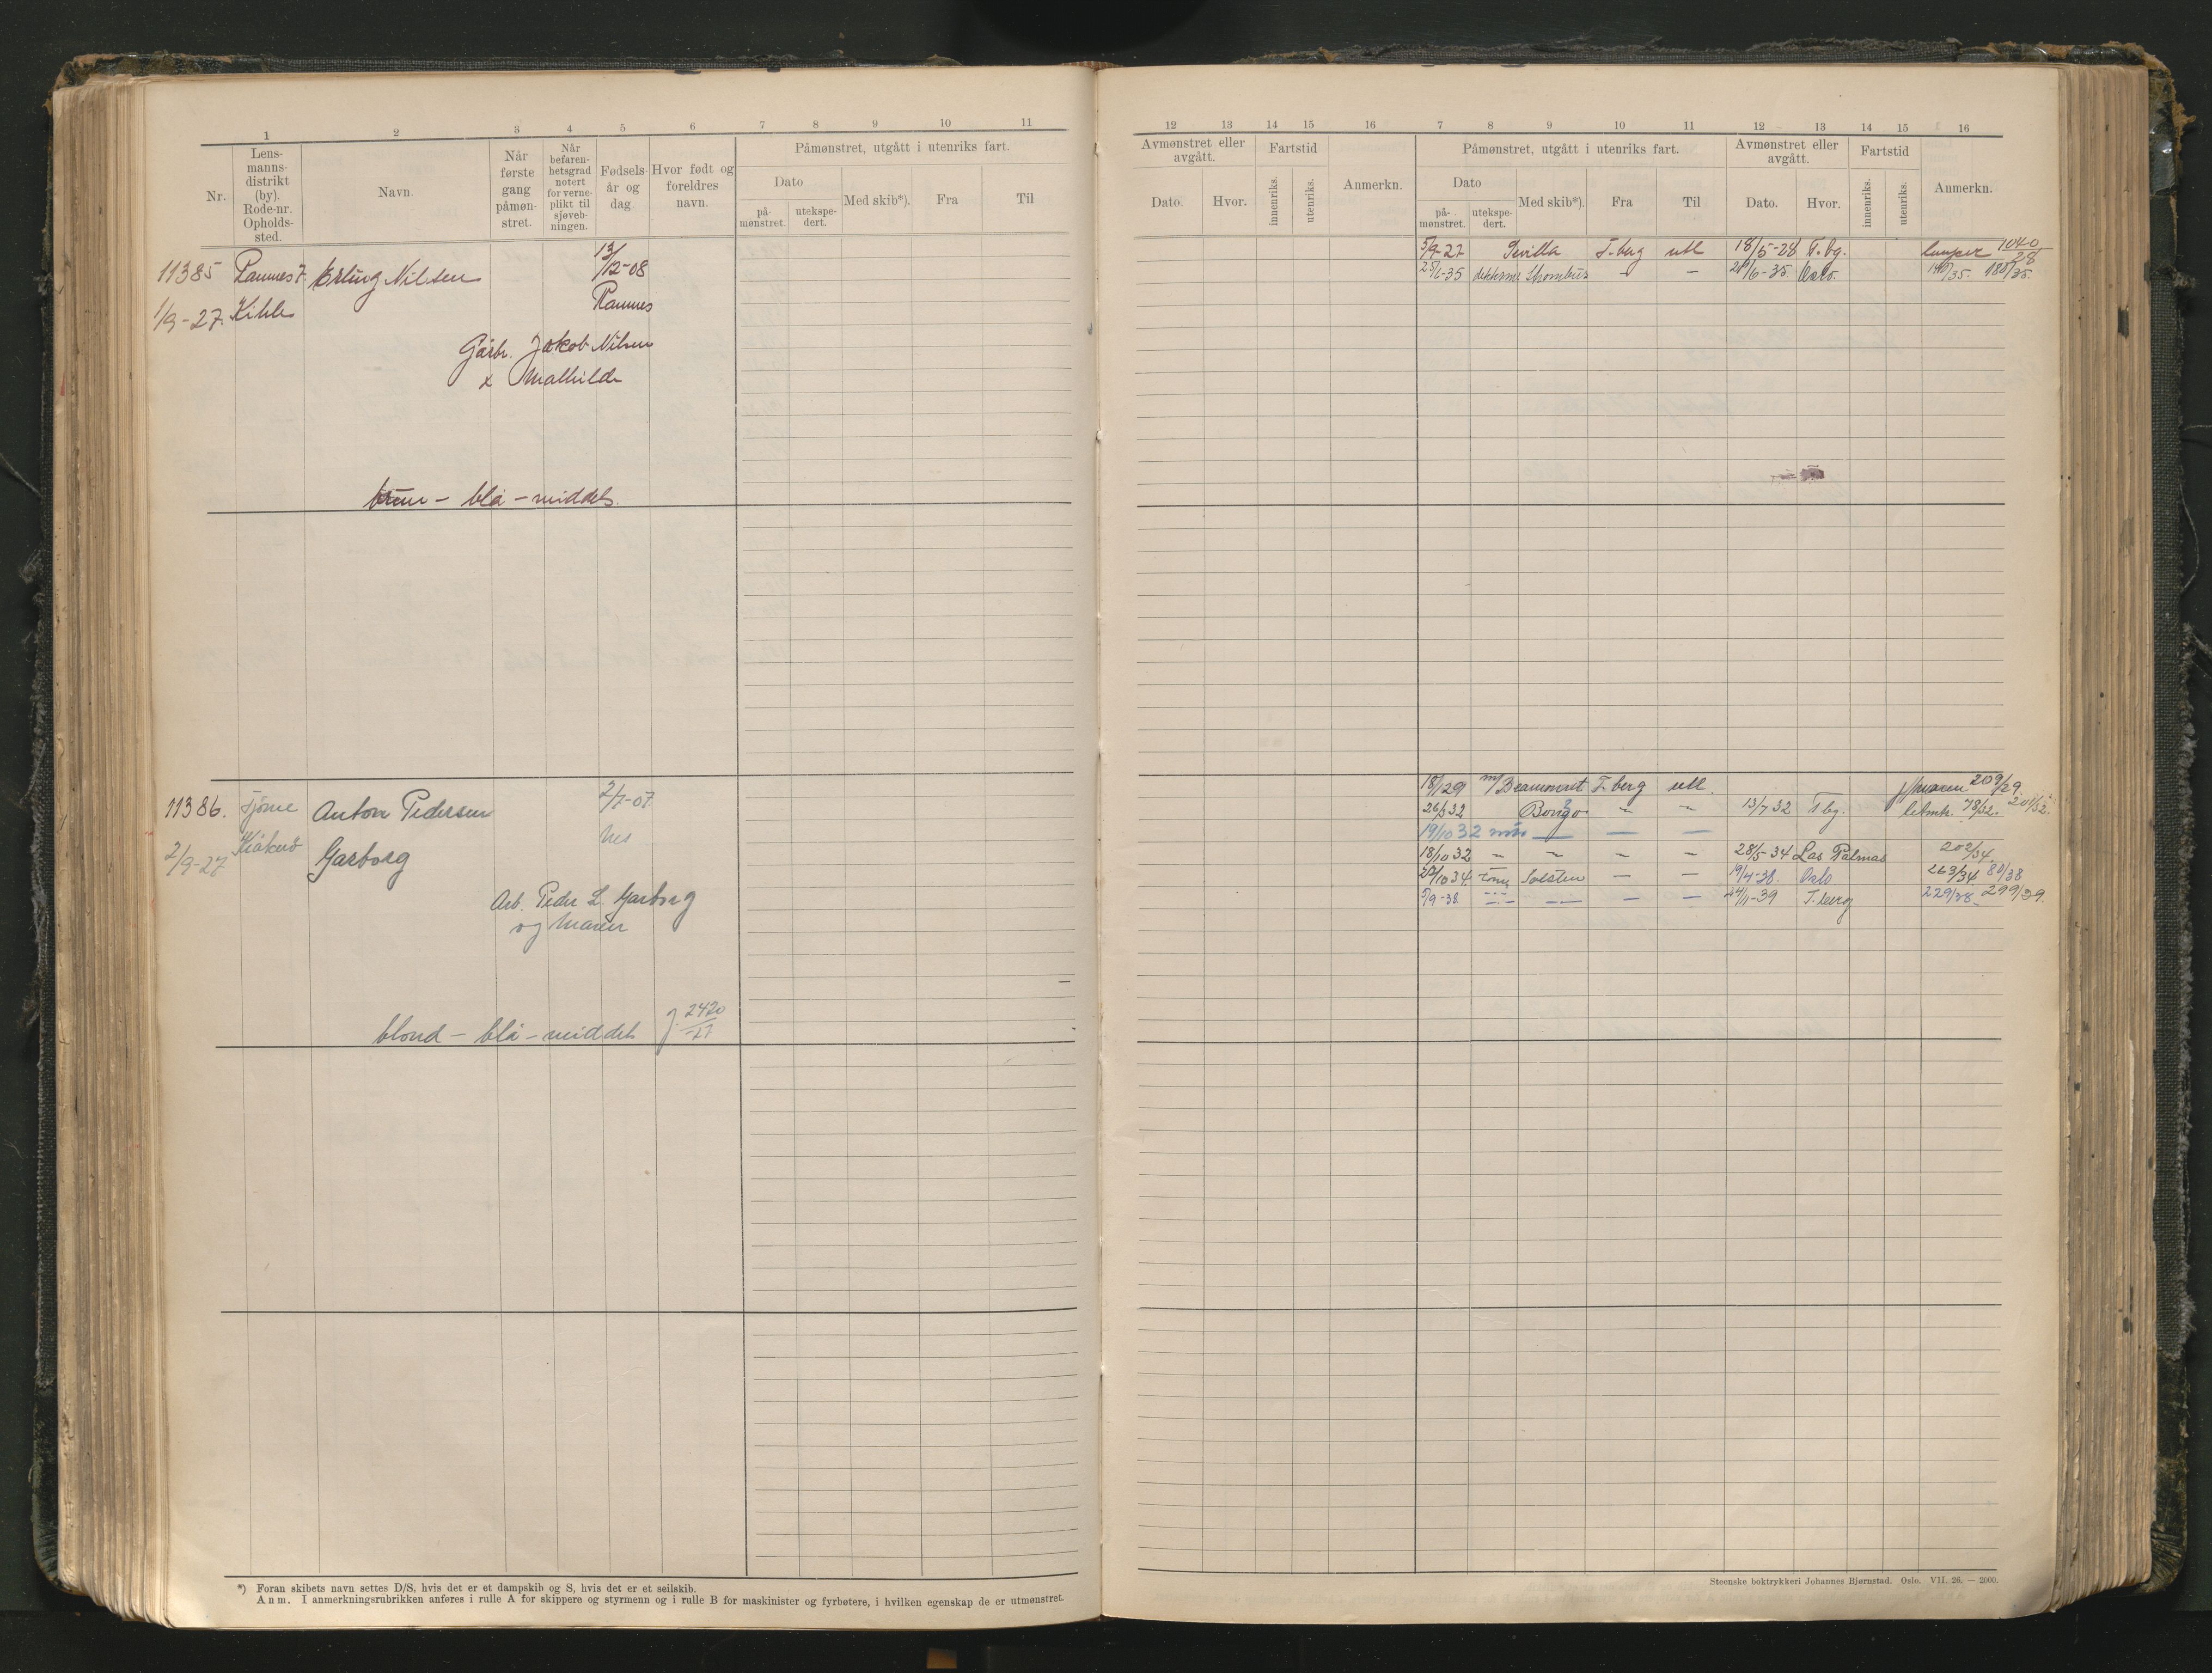 1 2 3 4 5 6 7 8 9 10 11
Nr.
Lens-
manns-
distrikt
(by).
Rode-nr.
Opholds-
sted.
Navn.
Når
første
gang
påmøn-
stret.
Når
befaren-
hetsgrad
notert
for verne-
plikt til
sjøveb-
ningen.
Fødsels-
år og
dag.
Hvor født og
foreldres
navn.
Påmønstret, utgått i utenriks fart.
Dato
på-
mønstret.
utekspe-
dert.
Med skib*).
Fra
Til
11385 Ramnes 7. Erling Nilsen 13/12-08
1/9-27. Ramnes
Gårbr. Jakob Nilsen
x Mathilde
brun - blå - middels.
11386. Tjøme Anton Pedersen 2/7-07
2/9-27 Garborg
Arb. Peder L. Garborg
og Maren
blond - blå - middels j. 2420/-27
*) Foran skibets navn settes D/S, hvis det er et dampskib og S, hvis det er et seilskib.
Anm. I anmerkningsrubrikken anføres i rulle A for skippere og styrmenn og i rulle B for maskinister og fyrbøtere, i hvilken egenskap de er utmønstret.
12 13 14 15 16 7 8 9 10 11 12 13 14 15 16
Avmønstret eller
avgått.
Dato.
Hvor.
Fartstid
innenriks.
utenriks.
Anmerkn.
Påmønstret, utgått i utenriks fart.
Dato
på-
mønstret.
utekspe-
dert.
Med skib*).
Fra
Til
Avmønstret eller
avgått.
Dato.
Hvor.
Fartstid
innenriks.
utenriks.
Anmerkn.
5/9-27 Sevilla T.berg utl 18/5-28 T.bg. lemper 1040/28
Strombus - - Oslo.
Beaumont T.berg utl. 209/29
26/3 32 Borgo - - 13/7 32 T.bg. 78/32. 201/32.
19/10 32 - - -
18/10 32 - - - - 28/5-34 Las Palmas 202/34.
Solsten - - Oslo 263/34 80/38
5/9-38. - - - - 24/11-39 T.berg 229/38. 299/39.
Steenske boktrykkeri Johannes Bjørnstad. Oslo. VII. 26. — 2000.